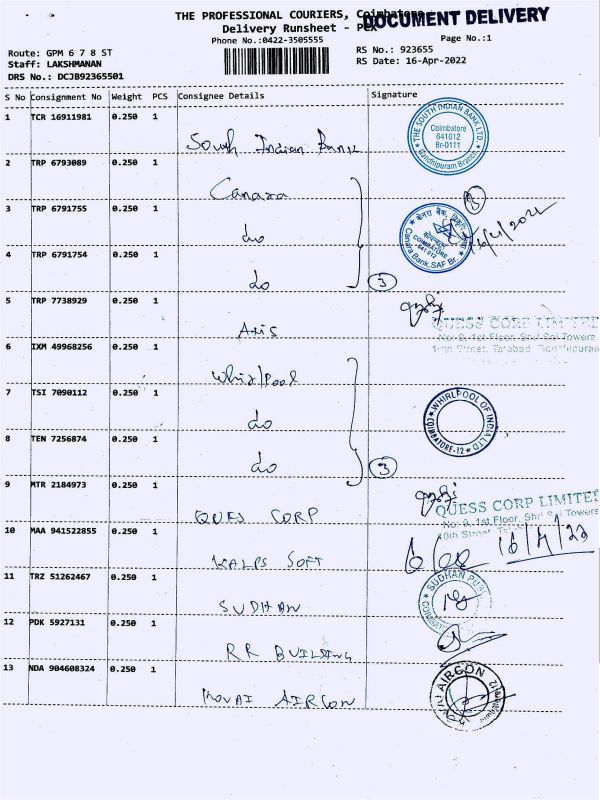 THE PROFESSIONAL COURIERS, Coimbatore
DOCUMENT DELIVERY
Delivery Runsheet - PEX
Phone No.:0422-3505555
Page No.:1
Route: GPM 6 7 8 ST
RS No.: 923655
Staff: LAKSHMANAN
RS Date: 16-Apr-2022
DRS No.: DCJB92365501
S No Consignment No Weight PCS Consignee Details Signature
1 TCR 16911981 0.250 1 South Indian Bank
THE SOUTH INDIAN BANK LTD. Coimbatore 641012 Br-0111 Gandhipuram Branch
2 TRP 6793089 0.250 1 Canara
3 TRP 6791755 0.250 1 do
केनरा बैंक, कोयम्बत्तूर COIMBATORE 641 012 Canara Bank, SAF Br.
4 TRP 6791754 0.250 1 do 3
5 TRP 7738929 0.250 1 Axis
QUESS CORP LIMITED
No: 9, 1st Floor, Shri Sai Towers
6 IXM 49968256 0.250 1 Whirlpool
7 TSI 7090112 0.250 1 do
WHIRLPOOL OF INDIA LTD COIMBATORE-12
8 TEN 7256874 0.250 1 do 3
9 MTR 2184973 0.250 1 QUES CORP
QUESS CORP LIMITED
No: 9, 1st Floor, Shri Sai Towers
10th Street
10 MAA 941522855 0.250 1 KALPS SOFT
16/4/22
11 TRZ 51262467 0.250 1 SUDHAN
SUDHAN
12 PDK 5927131 0.250 1 RR BUILDING
13 NDA 904608324 0.250 1 KOVAI AIRCON
KOVAI AIRCON